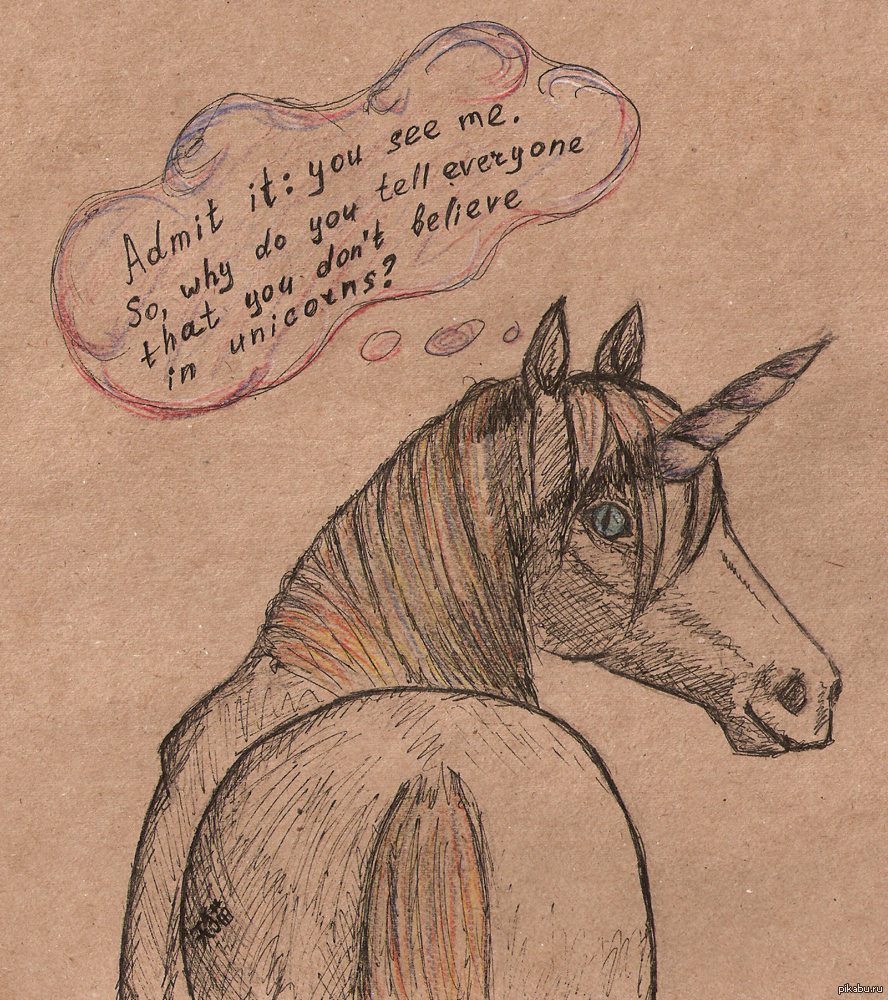 Admit it: you see me.
So, why do you tell everyone
that you don't believe
in unicorns?
pikabu.ru